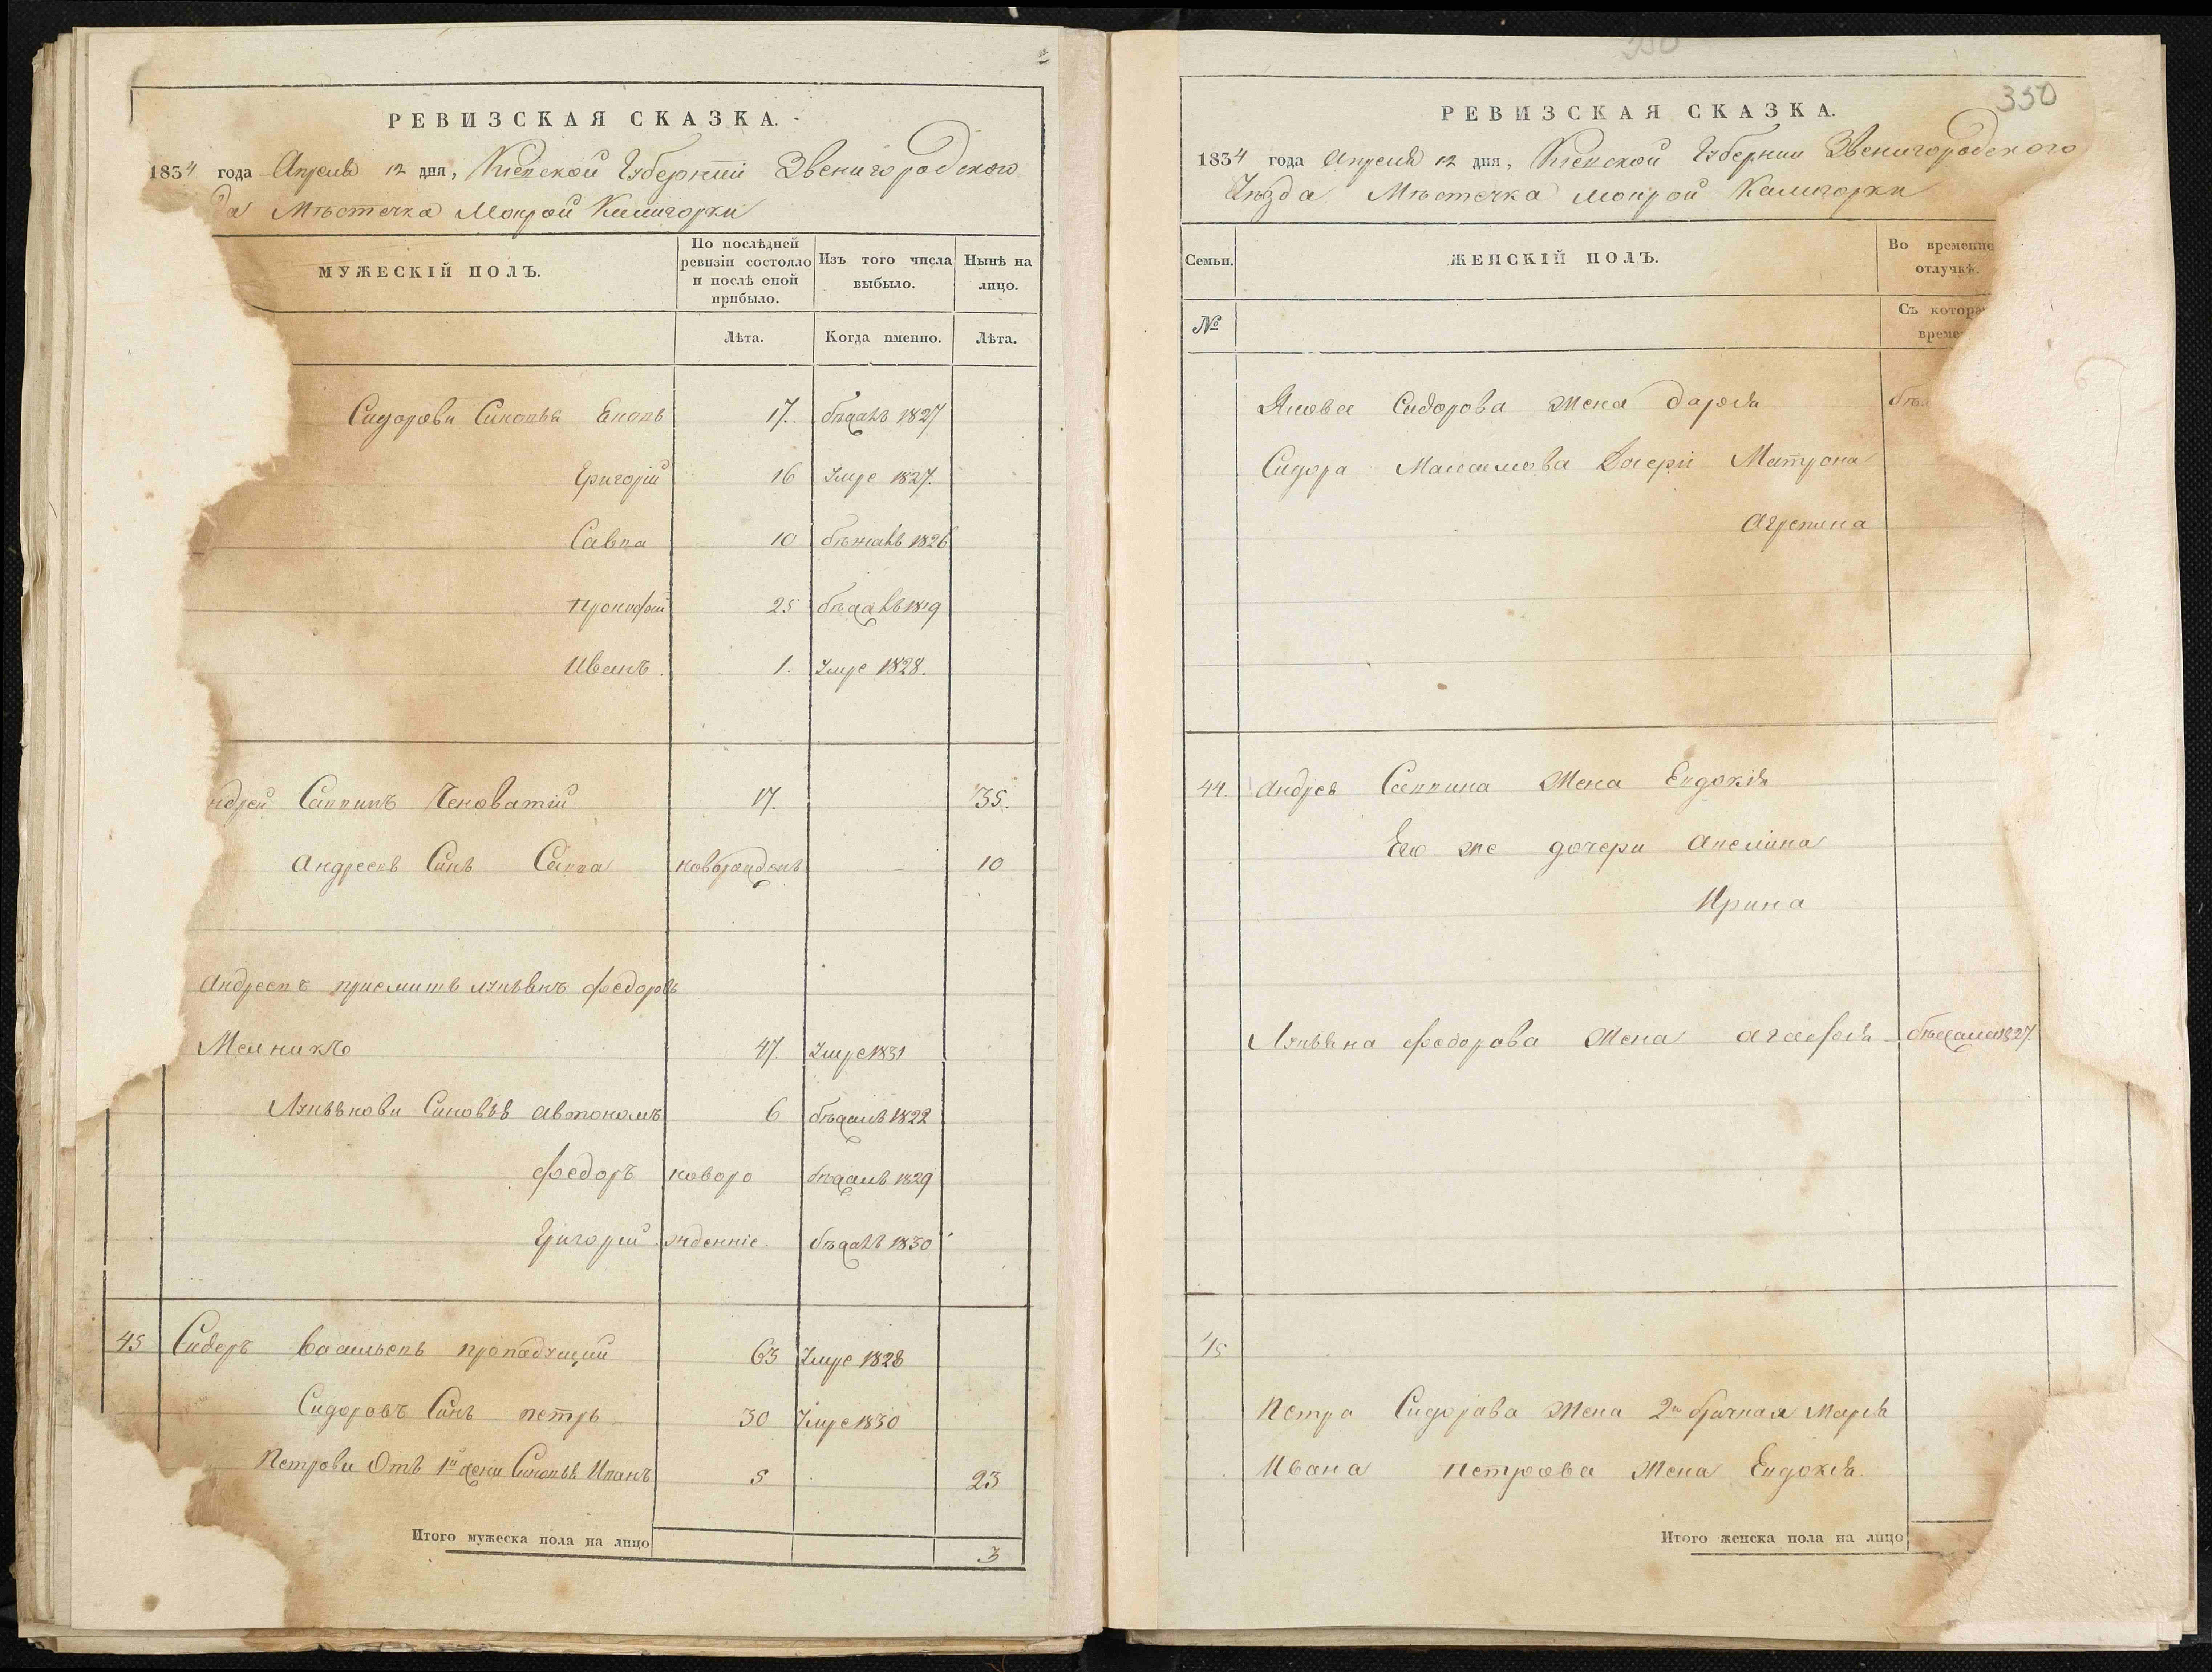 РЕВИЗСКАЯ СКАЗКА.
1834 года Апреля 12 дня, Кіевской Губерніи Звенигородского
да Мѣстечка Мокрой Калигорки
МУЖЕСКІЙ ПОЛЪ.
По послѣдней ревизіи состояло и послѣ оной прибыло.
Изъ того числа выбыло.
Нынѣ на лицо.
Лѣта.
Когда именно.
Лѣта.
Сидорови Синовья 17. бѣжалъ 1827
Григорій 16 Умре 1827.
Савва 10 бѣжалъ 1826
Прокофій 25 бѣжалъ 1819
Иванъ. 1. Умре 1828.
ндрей Саввинъ 17. 35.
Андреевъ Синъ Савва новорожденъ 10
Андреевъ приемишъ Лукьянъ Федоровъ
Мелникъ 47. Умре 1831
Лукьянови Синовья Автономъ 6 бѣжалъ 1822
Федоръ новоро бѣжалъ 1829
Григорій жденніе. бѣжалъ 1830
45 Сидоръ Васильевъ 63 Умре 1828
Сидоровъ Синъ Петръ 30 Умре 1830
Петрови Отъ 1й жени Синовья Иванъ 5 23
Итого мужеска пола на лицо 3
350
РЕВИЗСКАЯ СКАЗКА.
1834 года Апреля 12 дня, Кіевской Губернии Звенигородского
Уѣзда Мѣстечка Мокрой Калигорки
Семьи.
ЖЕНСКІЙ ПОЛЪ.
Во временно
отлучкѣ.
№
Съ котора
време
Якова Сидорова Жена Дарья бѣж
Сидора Максимова Дочери Матрона
Агрепина
44. Андрея Саввина Жена Евдокія
Его же дочери Акелина
Ирина
Лукьяна Федорова Жена Агафья бѣжала 1827.
45
Петра Сидорова Жена 2й брачная Марья
Ивана Петрова Жена Евдокія.
Итого женска пола на лицо